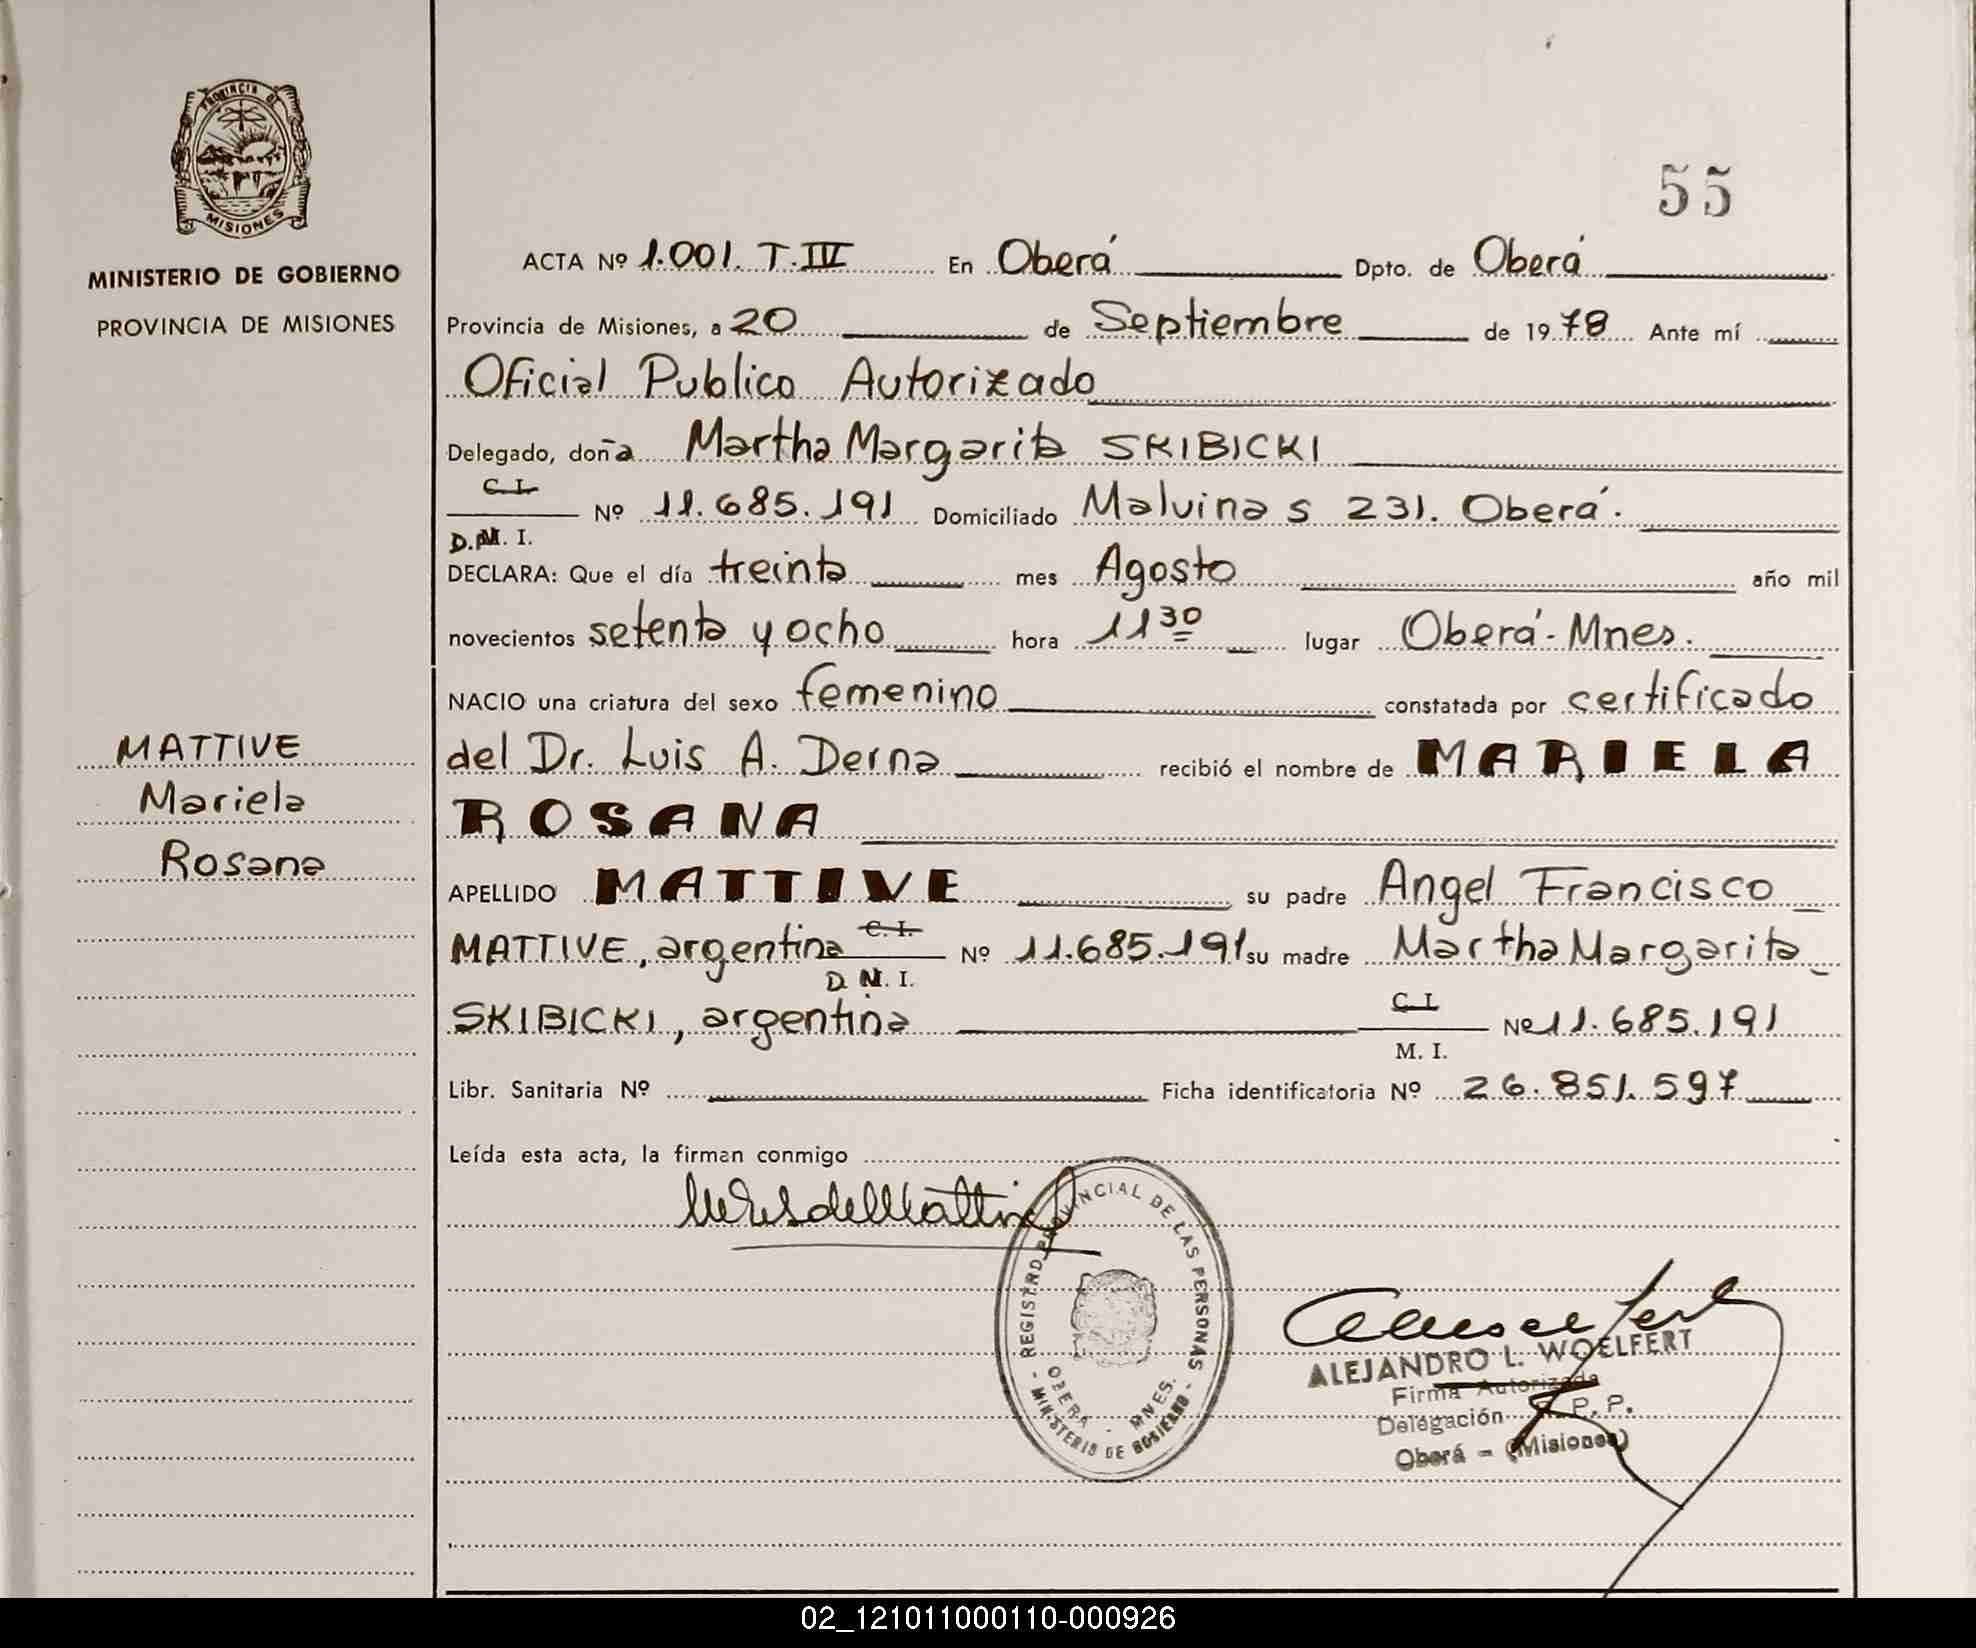 PROVINCIA DE
MISIONES
MINISTERIO DE GOBIERNO
PROVINCIA DE MISIONES
MATTIVE
Mariela
Rosana
55
ACTA Nº 1.001. T.IV En Oberá Dpto. de Oberá
Provincia de Misiones, a 20 de Septiembre de 1978 Ante mí
Oficial Publico Autorizado
Delegado, doña Martha Margarita SKIBICKI
C.I.
Nº 11.685.191 Domiciliado Malvinas 231. Oberá.
D.N.I.
DECLARA: Que el día treinta mes Agosto año mil
novecientos setenta y ocho hora 11 30 lugar Oberá-Mnes.
NACIO una criatura del sexo femenino constatada por certificado
del Dr. Luis A. Derna recibió el nombre de MARIELA
ROSANA
APELLIDO MATTIVE su padre Angel Francisco
MATTIVE, argentina C.I. Nº 11.685.191 su madre Martha Margarita
D.N.I.
SKIBICKI, argentina C.I. Nº 11.685.191
M. I.
Libr. Sanitaria Nº Ficha identificatoria Nº 26.851.597
Leída esta acta, la firman conmigo
REGISTRO PROVINCIAL DE LAS PERSONAS
OBERA - MNES.
- MINISTERIO DE GOBIERNO -
ALEJANDRO L. WOELFERT
Firma Autorizada
Delegación R. P. P.
Oberá - (Misiones)
02_121011000110-000926